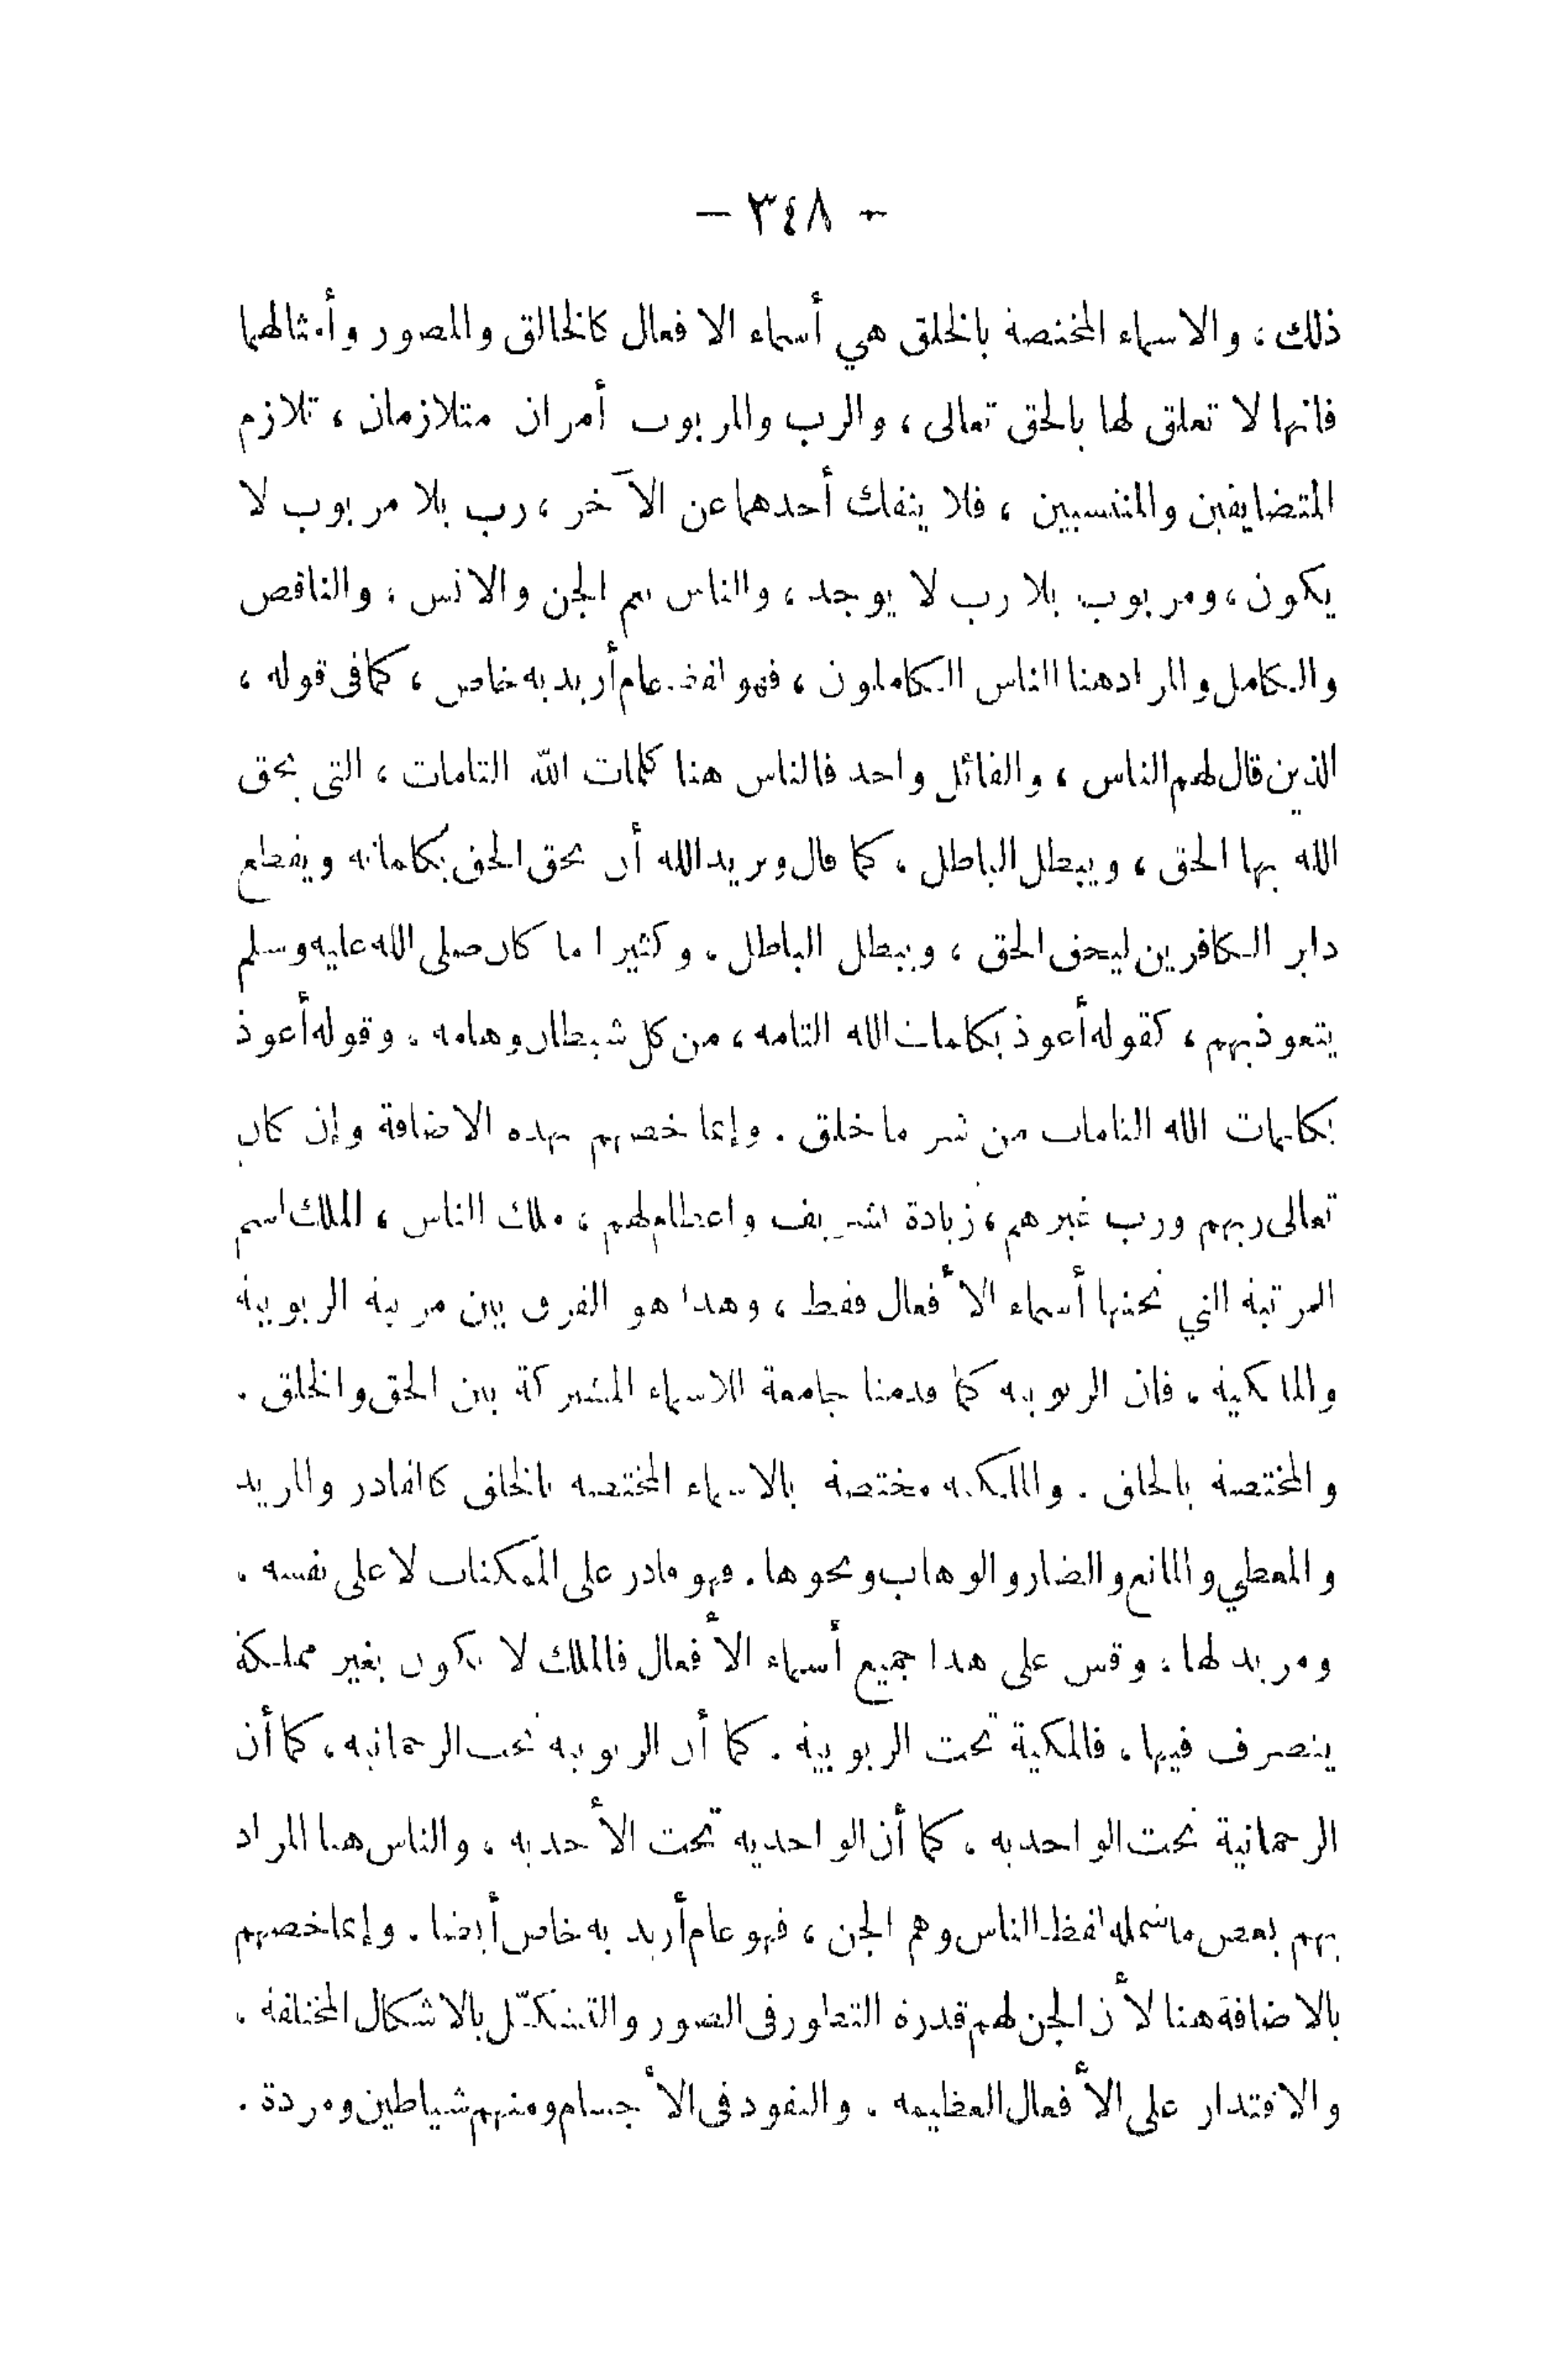 - ٣٤٨ -
ذلك ، والاسماء المختصة بالخلق هي أسماء الافعال كالخالق والمصور وأمثالهما
فانها لا تعلق لها بالحق تعالى ، والرب والمربوب أمران متلازمان ، تلازم
المتضايفين والمنتسبين ، فلا ينفك أحدهما عن الآخر ، رب بلا مربوب لا
يكون ، ومربوب بلا رب لا يوجد ، والناس يعم الجن والانس ، والناقص
والكامل والمراد هنا الناس الكاملون ، فهو لفظ عام أريد به خاص ، كما فى قوله ،
الذين قال لهم الناس ، والقائل واحد فالناس هنا كلمات الله التامات ، التى يحق
الله بها الحق ، ويبطل الباطل ، كما قال ويريد الله أن يحق الحق بكلماته ويقطع
دابر الكافرين ليحق الحق ، ويبطل الباطل . وكثيرا ما كان صلى الله عليه وسلم
يتعوذ بهم ، كقوله أعوذ بكلمات الله التامه ، من كل شيطان وهامه . وقوله أعوذ
بكلمات الله التامات من شر ما خلق . وإنما خصهم بهذه الاضافة وإن كان
تعالى ربهم ورب غيرهم ، زيادة تشريف واعظام لهم ، ملك الناس ، الملك اسم
المرتبة التي تحتها أسماء الأفعال فقط ، وهذا هو الفرق بين مرتبة الربوبية
والملكية ، فان الربوبيه كما قدمنا جامعة للاسماء المشتركة بين الحق والخلق .
والمختصة بالخلق . والملكيه مختصة بالاسماء المختصه بالخلق كالقادر والمريد
والمعطي والمانع والضار والوهاب ونحوها . فهو قادر على الممكنات لا على نفسه .
ومريد لها ، وقس على هذا جميع أسماء الأفعال فالملك لا يكون بغير مملكة
يتصرف فيها ، فالمكية تحت الربوبية . كما أن الربوبيه تحت الرحمانيه ، كما أن
الرحمانية تحت الواحديه ، كما أن الواحديه تحت الأحديه ، والناس هنا المراد
بهم بعض ما شمله لفظ الناس وهم الجن ، فهو عام أريد به خاص أيضا . وإنما خصهم
بالاضافة هنا لأن الجن لهم قدرة التطور فى الصور والتشكّل بالاشكال المختلفة ،
والاقتدار على الأفعال العظيمه . والنفوذ فى الأجسام ومنهم شياطين ومردة .